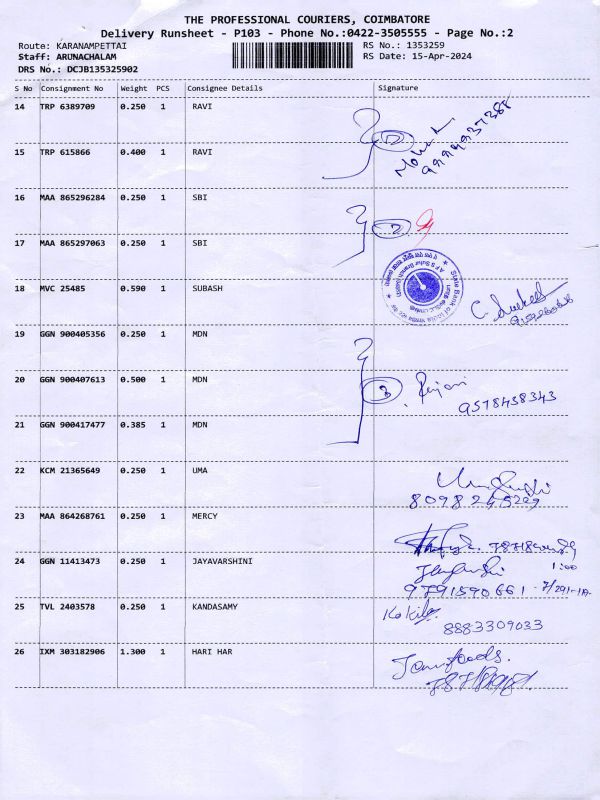 THE PROFESSIONAL COURIERS, COIMBATORE
Delivery Runsheet - P103 - Phone No.:0422-3505555 - Page No.:2
Route: KARANAMPETTAI RS No.: 1353259
Staff: ARUNACHALAM RS Date: 15-Apr-2024
DRS No.: DCJB135325902
S No Consignment No Weight PCS Consignee Details Signature
14 TRP 6389709 0.250 1 RAVI
15 TRP 615866 0.400 1 RAVI
16 MAA 865296284 0.250 1 SBI
2
17 MAA 865297063 0.250 1 SBI
State Bank of India
18 MVC 25485 0.590 1 SUBASH
19 GGN 900405356 0.250 1 MDN
20 GGN 900407613 0.500 1 MDN
3
9578458343
21 GGN 900417477 0.385 1 MDN
22 KCM 21365649 0.250 1 UMA
8098245229
23 MAA 864268761 0.250 1 MERCY
24 GGN 11413473 0.250 1 JAYAVARSHINI
1:00
9791590661
25 TVL 2403578 0.250 1 KANDASAMY
8883309033
26 IXM 303182906 1.300 1 HARI HAR